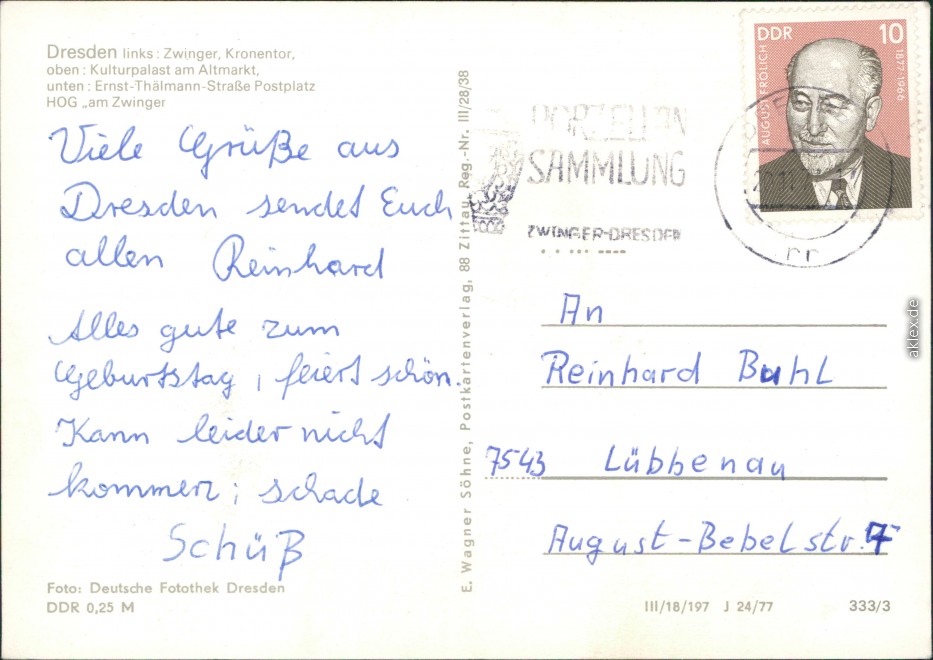 Dresden links: Zwinger, Kronentor,
oben: Kulturpalast am Altmarkt,
unten: Ernst-Thälmann-Straße Postplatz
HOG „am Zwinger
Viele Grüße aus
Dresden sendet Euch
allen Reinhard
Alles gute zum
Geburtstag, feiert schön.
Kann leider nicht
kommen; schade
Schüß
Foto: Deutsche Fotothek Dresden
DDR 0,25 M
E. Wagner Söhne, Postkartenverlag, 88 Zittau, Reg.-Nr. III/28/38
PORZELLAN
SAMMLUNG
ZWINGER-DRESDEN
DDR 10
AUGUST FRÖLICH
1877-1966
An
Reinhard Buhl
7543 Lübbenau
August-Bebelstr. 7
III/18/197 J 24/77 333/3
aklex.de